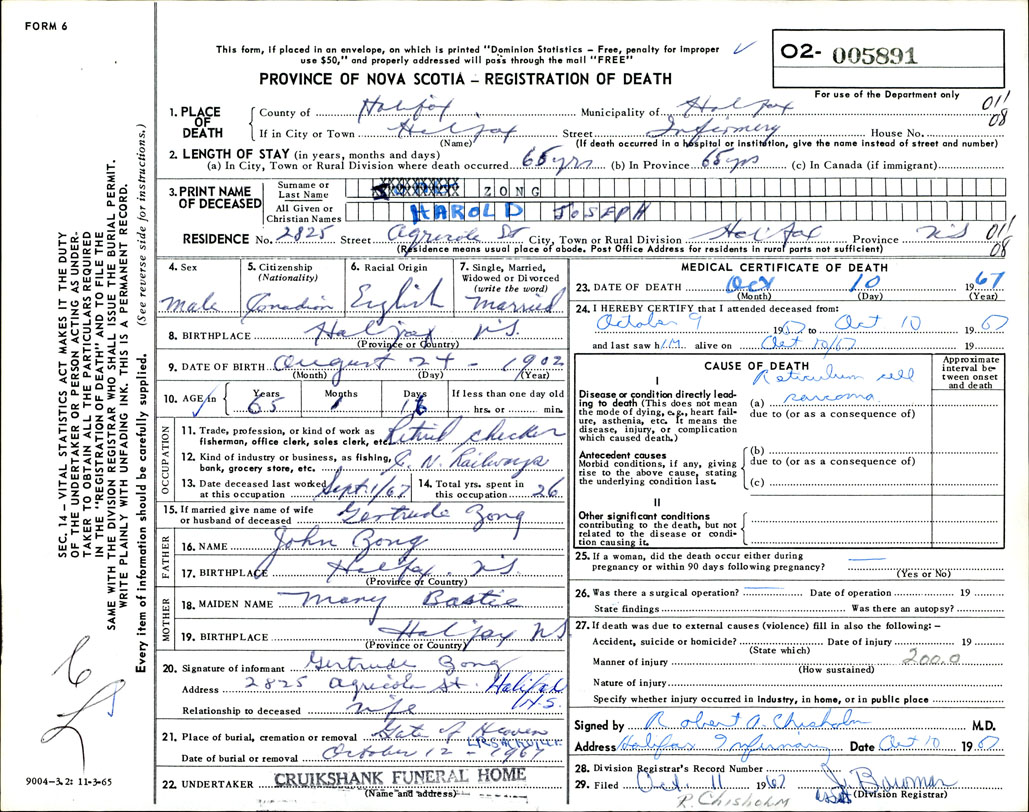 FORM 6
This form, if placed in an envelope, on which is printed "Dominion Statistics – Free, penalty for improper
use $50," and properly addressed will pass through the mail "FREE"
O2- 005891
For use of the Department only
PROVINCE OF NOVA SCOTIA – REGISTRATION OF DEATH
SEC. 14 – VITAL STATISTICS ACT MAKES IT THE DUTY
OF THE UNDERTAKER OR PERSON ACTING AS UNDER-
TAKER TO OBTAIN ALL THE PARTICULARS REQUIRED
IN THE "REGISTRATION OF DEATH" AND TO FILE THE
SAME WITH THE DIVISION REGISTRAR WHO SHALL ISSUE THE BURIAL PERMIT.
WRITE PLAINLY WITH UNFADING INK. THIS IS A PERMANENT RECORD.
Every item of information should be carefully supplied. (See reverse side for instructions.)
1. PLACE OF DEATH
County of Halifax Municipality of Halifax 011 08
If in City or Town Halifax Street Infirmery House No.
(Name) (If death occurred in a hospital or institution, give the name instead of street and number)
2. LENGTH OF STAY (in years, months and days)
(a) In City, Town or Rural Division where death occurred 65 yrs (b) In Province 65 yrs (c) In Canada (if immigrant)
3. PRINT NAME OF DECEASED
Surname or Last Name ZONG
All Given or Christian Names HAROLD JOSEPH
RESIDENCE No. 2825 Street Agricole St City, Town or Rural Division Halifax Province NS 011 08
(Residence means usual place of abode. Post Office Address for residents in rural parts not sufficient)
4. Sex 5. Citizenship (Nationality) 6. Racial Origin 7. Single, Married, Widowed or Divorced (write the word)
Male Canadian English Married
8. BIRTHPLACE Halifax NS.
(Province or Country)
9. DATE OF BIRTH August 24 - 1902
(Month) (Day) (Year)
10. AGE in Years Months Days If less than one day old
65 1 16 hrs. or min.
OCCUPATION
11. Trade, profession, or kind of work as
fisherman, office clerk, sales clerk, etc. Retired checker
12. Kind of industry or business, as fishing,
bank, grocery store, etc. C. N. Railways
13. Date deceased last worked
at this occupation Sept. 1/67
14. Total yrs. spent in
this occupation 26
15. If married give name of wife
or husband of deceased Gertrude Zong
FATHER
16. NAME John Zong
17. BIRTHPLACE Halifax. NS.
(Province or Country)
MOTHER
18. MAIDEN NAME Mary Bastie
19. BIRTHPLACE Halifax NS
(Province or Country)
20. Signature of informant Gertrude Zong
Address 2825 Agricola St. Halifax N.S.
Relationship to deceased wife
21. Place of burial, cremation or removal Gate of Heaven
LR. SACKVILLE
Date of burial or removal October 12 - 1967
22. UNDERTAKER CRUIKSHANK FUNERAL HOME
(Name and address)
9004-3.2: 11-3-65
MEDICAL CERTIFICATE OF DEATH
23. DATE OF DEATH Oct 10 1967
(Month) (Day) (Year)
24. I HEREBY CERTIFY that I attended deceased from:
October 9 1967 to Oct 10 1967
and last saw h I.M. alive on Oct 10/67 19
CAUSE OF DEATH
Approximate interval between onset and death
I
Disease or condition directly lead-
ing to death (This does not mean
the mode of dying, e.g., heart fail-
ure, asthenia, etc. It means the
disease, injury, or complication
which caused death.)
Reticulum cell
(a) sarcoma
due to (or as a consequence of)
Antecedent causes
Morbid conditions, if any, giving
rise to the above cause, stating
the underlying condition last.
(b)
due to (or as a consequence of)
(c)
II
Other significant conditions
contributing to the death, but not
related to the disease or condi-
tion causing it.
25. If a woman, did the death occur either during
pregnancy or within 90 days following pregnancy?
(Yes or No)
26. Was there a surgical operation? Date of operation 19
State findings Was there an autopsy?
27. If death was due to external causes (violence) fill in also the following: –
Accident, suicide or homicide? Date of injury 19
(State which)
Manner of injury 200.0
(How sustained)
Nature of injury
Specify whether injury occurred in industry, in home, or in public place
Signed by Robert A. Chisholm M.D.
Address Halifax Infirmary Date Oct 10 1967
28. Division Registrar's Record Number
29. Filed Oct. 11 1967
(Division Registrar)
R. CHISHOLM